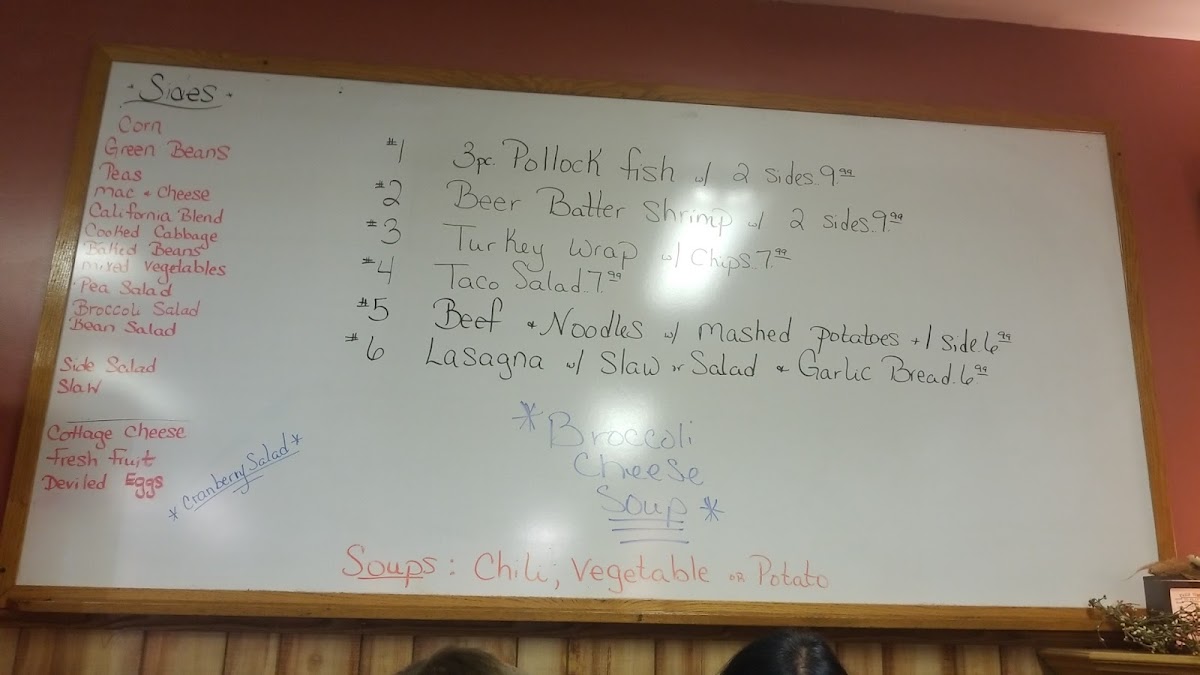 · Sides ·
Corn
Green Beans
Peas
Mac & Cheese
California Blend
Cooked Cabbage
Baked Beans
Mixed Vegetables
Pea Salad
Broccoli Salad
Bean Salad
Side Salad
Slaw
Cottage Cheese
Fresh Fruit
Deviled Eggs
* Cranberry Salad *
#1 3pc. Pollock fish w/ 2 sides..9.99
#2 Beer Batter Shrimp w/ 2 sides.9.99
#3 Turkey wrap w/ Chips.7.99
#4 Taco Salad.7.99
#5 Beef & Noodles w/ mashed potatoes + 1 side.6.99
#6 Lasagna w/ Slaw or Salad & Garlic Bread.6.99
* Broccoli
Cheese
Soup *
Soups: Chili, Vegetable OR Potato